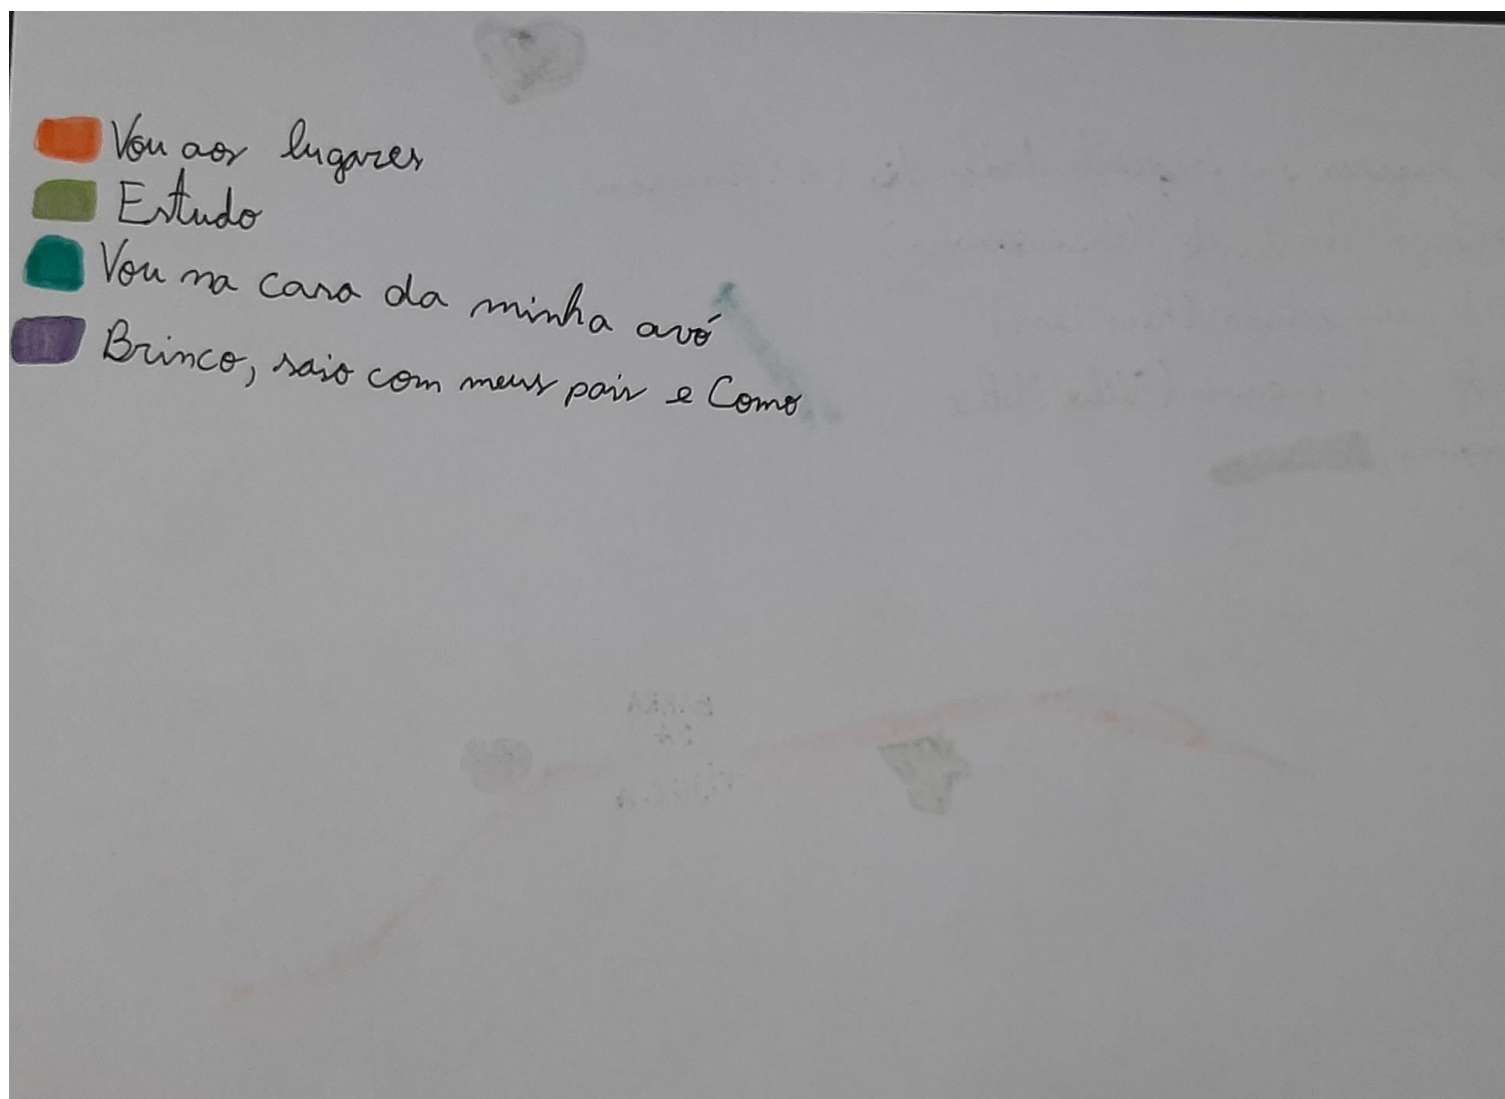 Vou aos lugares
Estudo
Vou na casa da minha avó
Brinco, saio com meus pais e Como